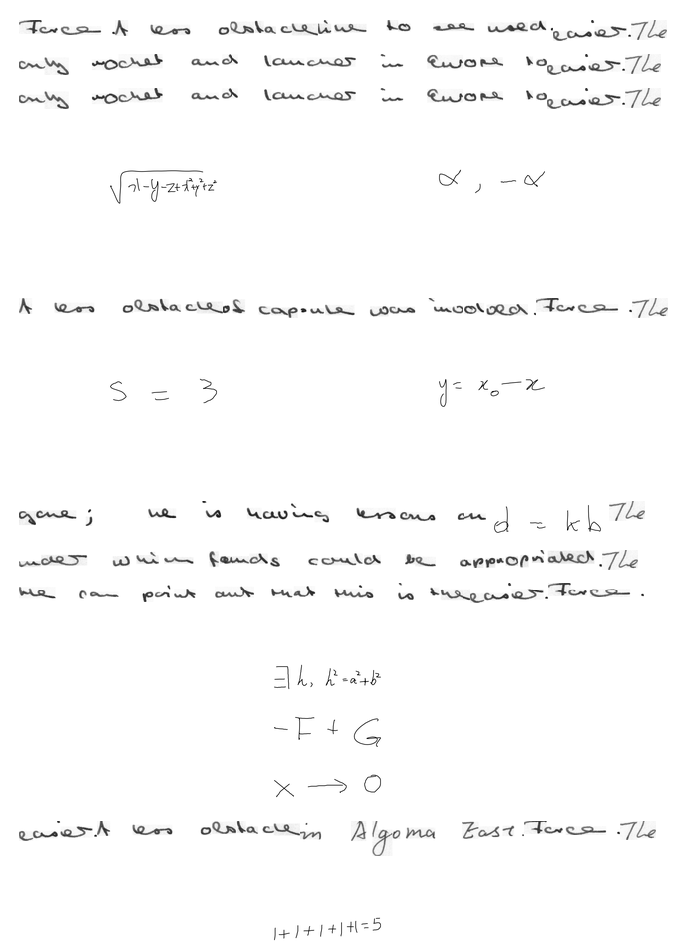 Force A less obstacle line to see used. easier. The
only rocket and launcher in Europe to easier. The
only rocket and launcher in Europe to easier. The
√x-y-z+x²+y²+z²
α, -α
A less obstacle of capsule was involved. Force. The
S = 3
y = x₀ - x
gone; he is having lessons on d = kb The
under which funds could be appropriated. The
He can point out that this is the easier. Force.
∃h, h²=a²+b²
-F + G
x → 0
easier. A less obstacle in Algoma East. Force. The
1+1+1+1+1=5